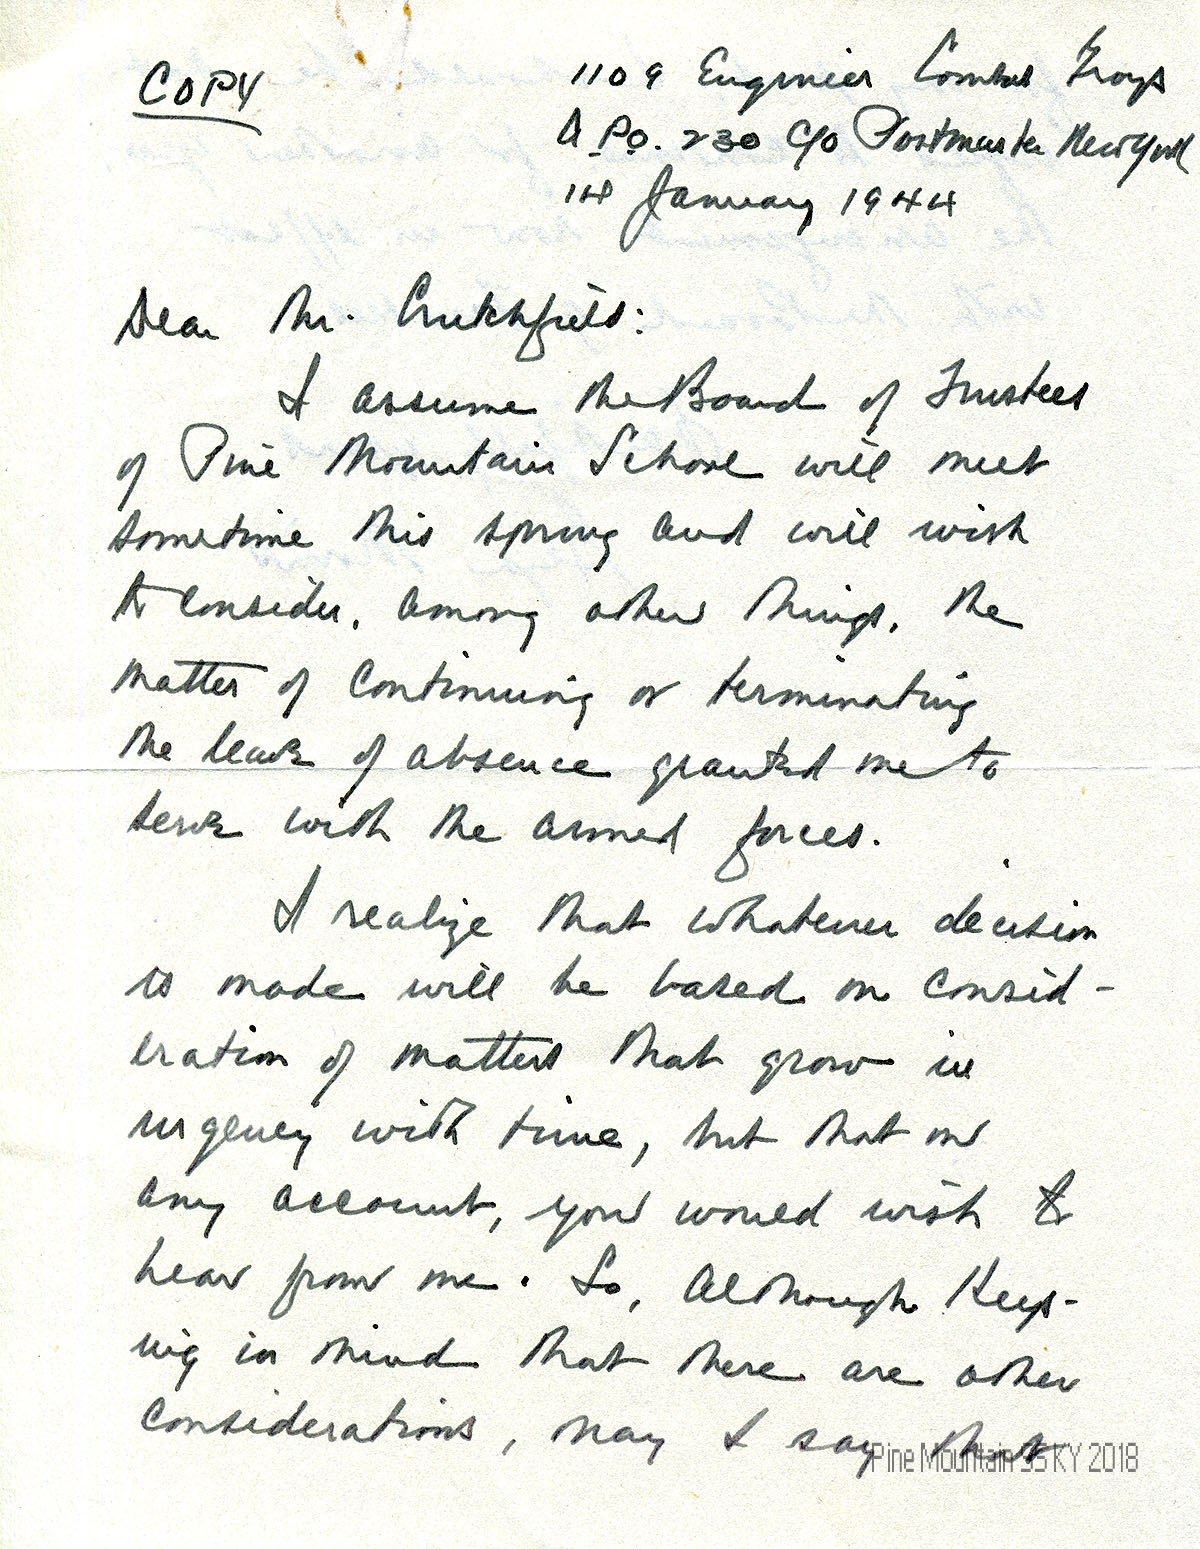 COPY
1109 Engineer Combat Group
A.P.O. 230 c/o Postmaster New York
14 January 1944
Dear Mr. Crutchfield:
I assume the Board of Trustees
of Pine Mountain School will meet
sometime this spring and will wish
to consider, among other things, the
matter of continuing or terminating
the leave of absence granted me to
serve with the armed forces.
I realize that whatever decision
is made will be based on consid-
eration of matters that grow in
urgency with time, but that on
any account, you would wish to
hear from me. So, although keep-
ing in mind that there are other
considerations, may I say that
Pine Mountain SS KY 2018